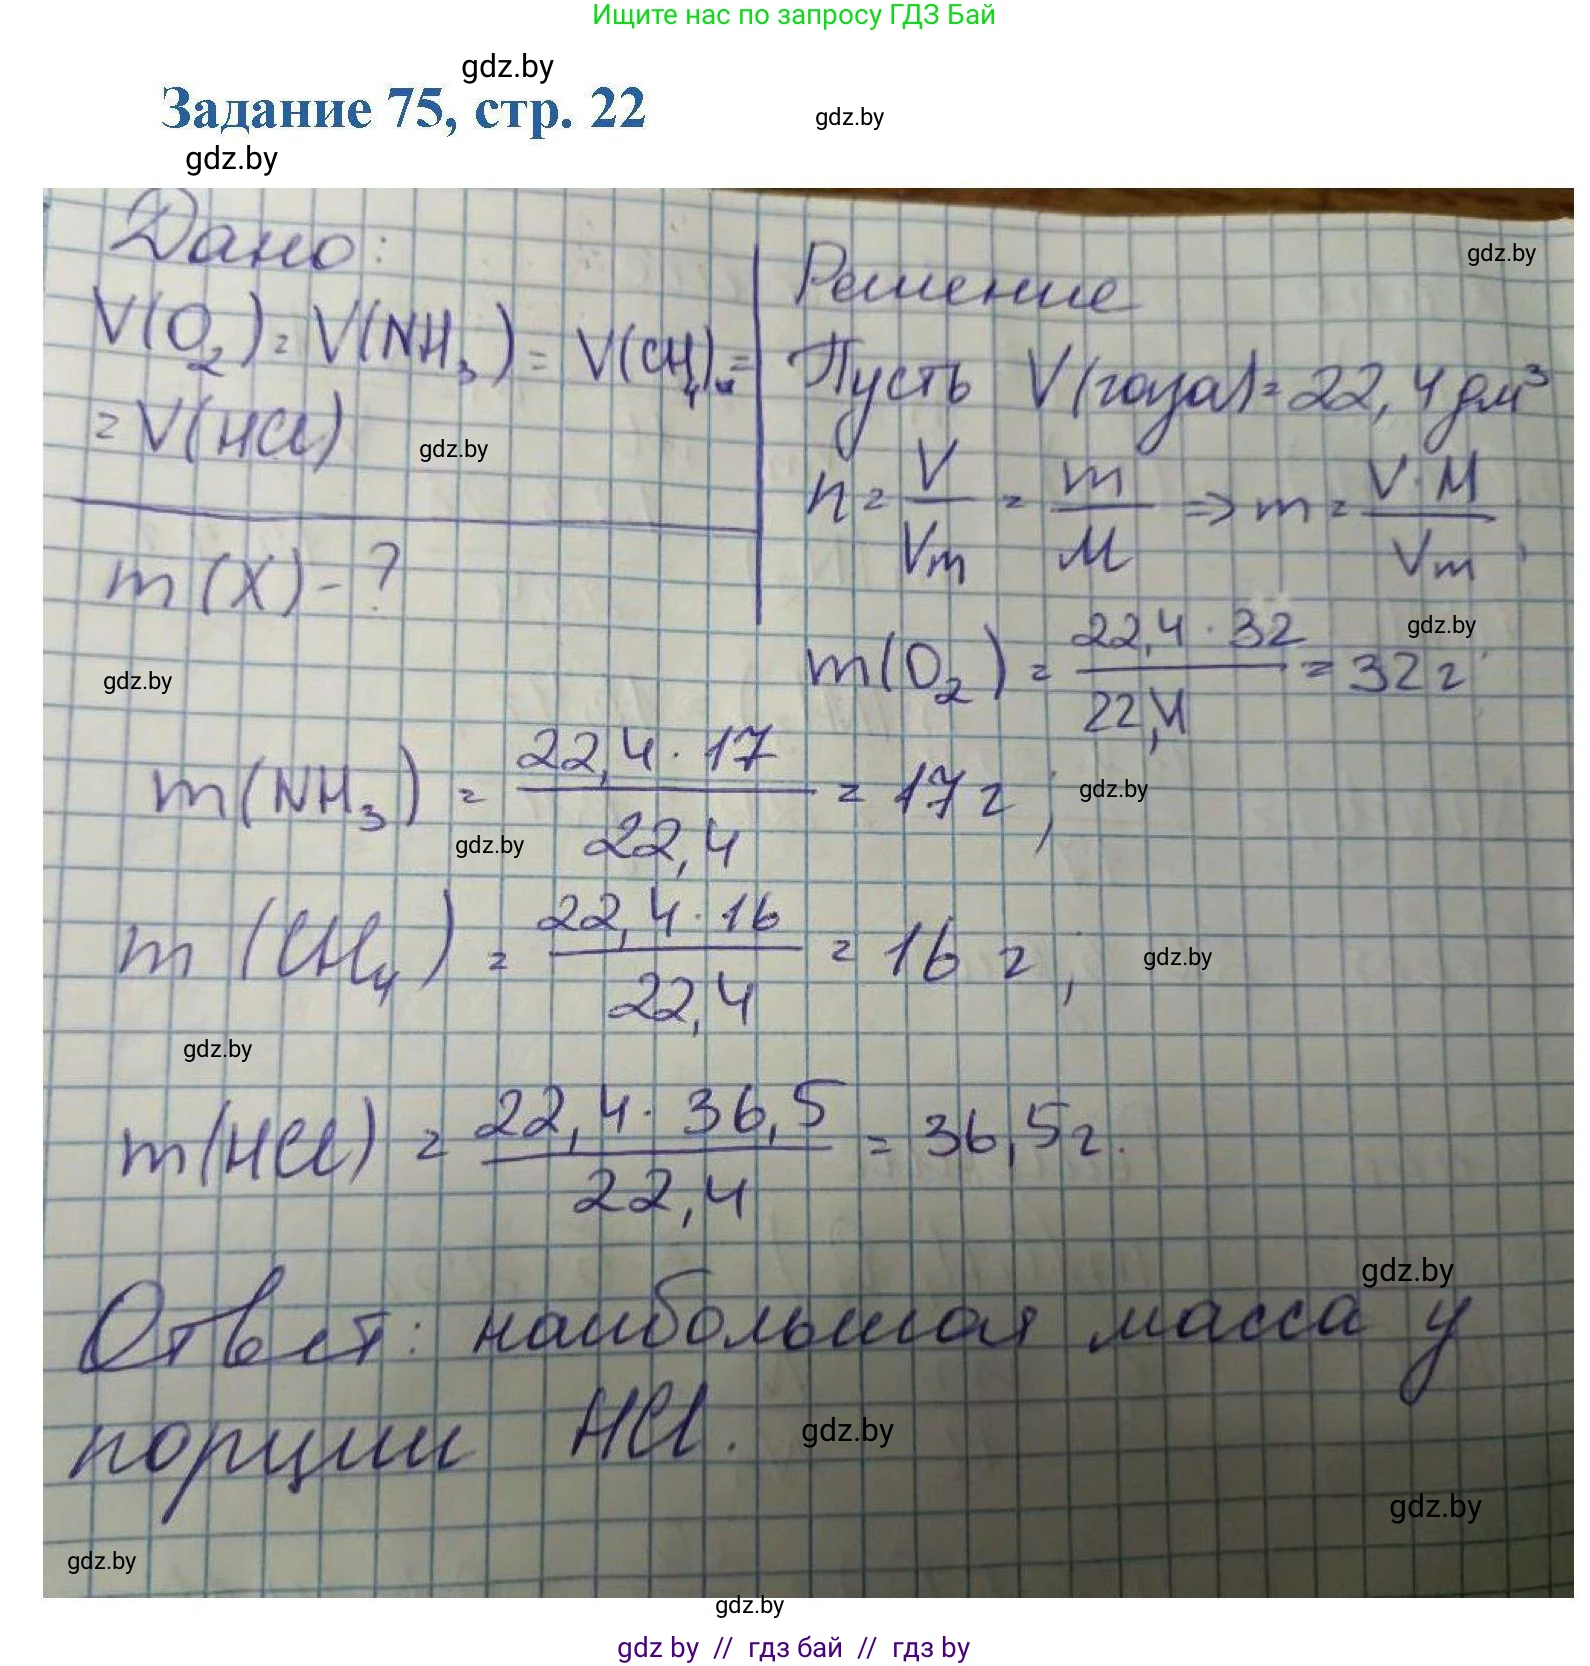 Ищите нас по запросу ГДЗ Бай
gdz.by
Задание 75, стр. 22
gdz.by
gdz.by
Дано:
Решение
gdz.by
V(O₂) = V(NH₃) = V(CH₄) =
Пусть V(газа) = 22,4 дм³
= V(HCl)
gdz.by
n = V/Vm = m/M => m = V·M/Vm,
m(X) - ?
gdz.by
m(O₂) = 22,4·32/22,4 = 32 г;
gdz.by
m(NH₃) = 22,4·17/22,4 = 17 г;
gdz.by
gdz.by
m(CH₄) = 22,4·16/22,4 = 16 г;
gdz.by
gdz.by
m(HCl) = 22,4·36,5/22,4 = 36,5 г.
gdz.by
Ответ: наибольшая масса у
порции HCl.
gdz.by
gdz.by
gdz.by
gdz.by
gdz by // гдз бай // гдз by